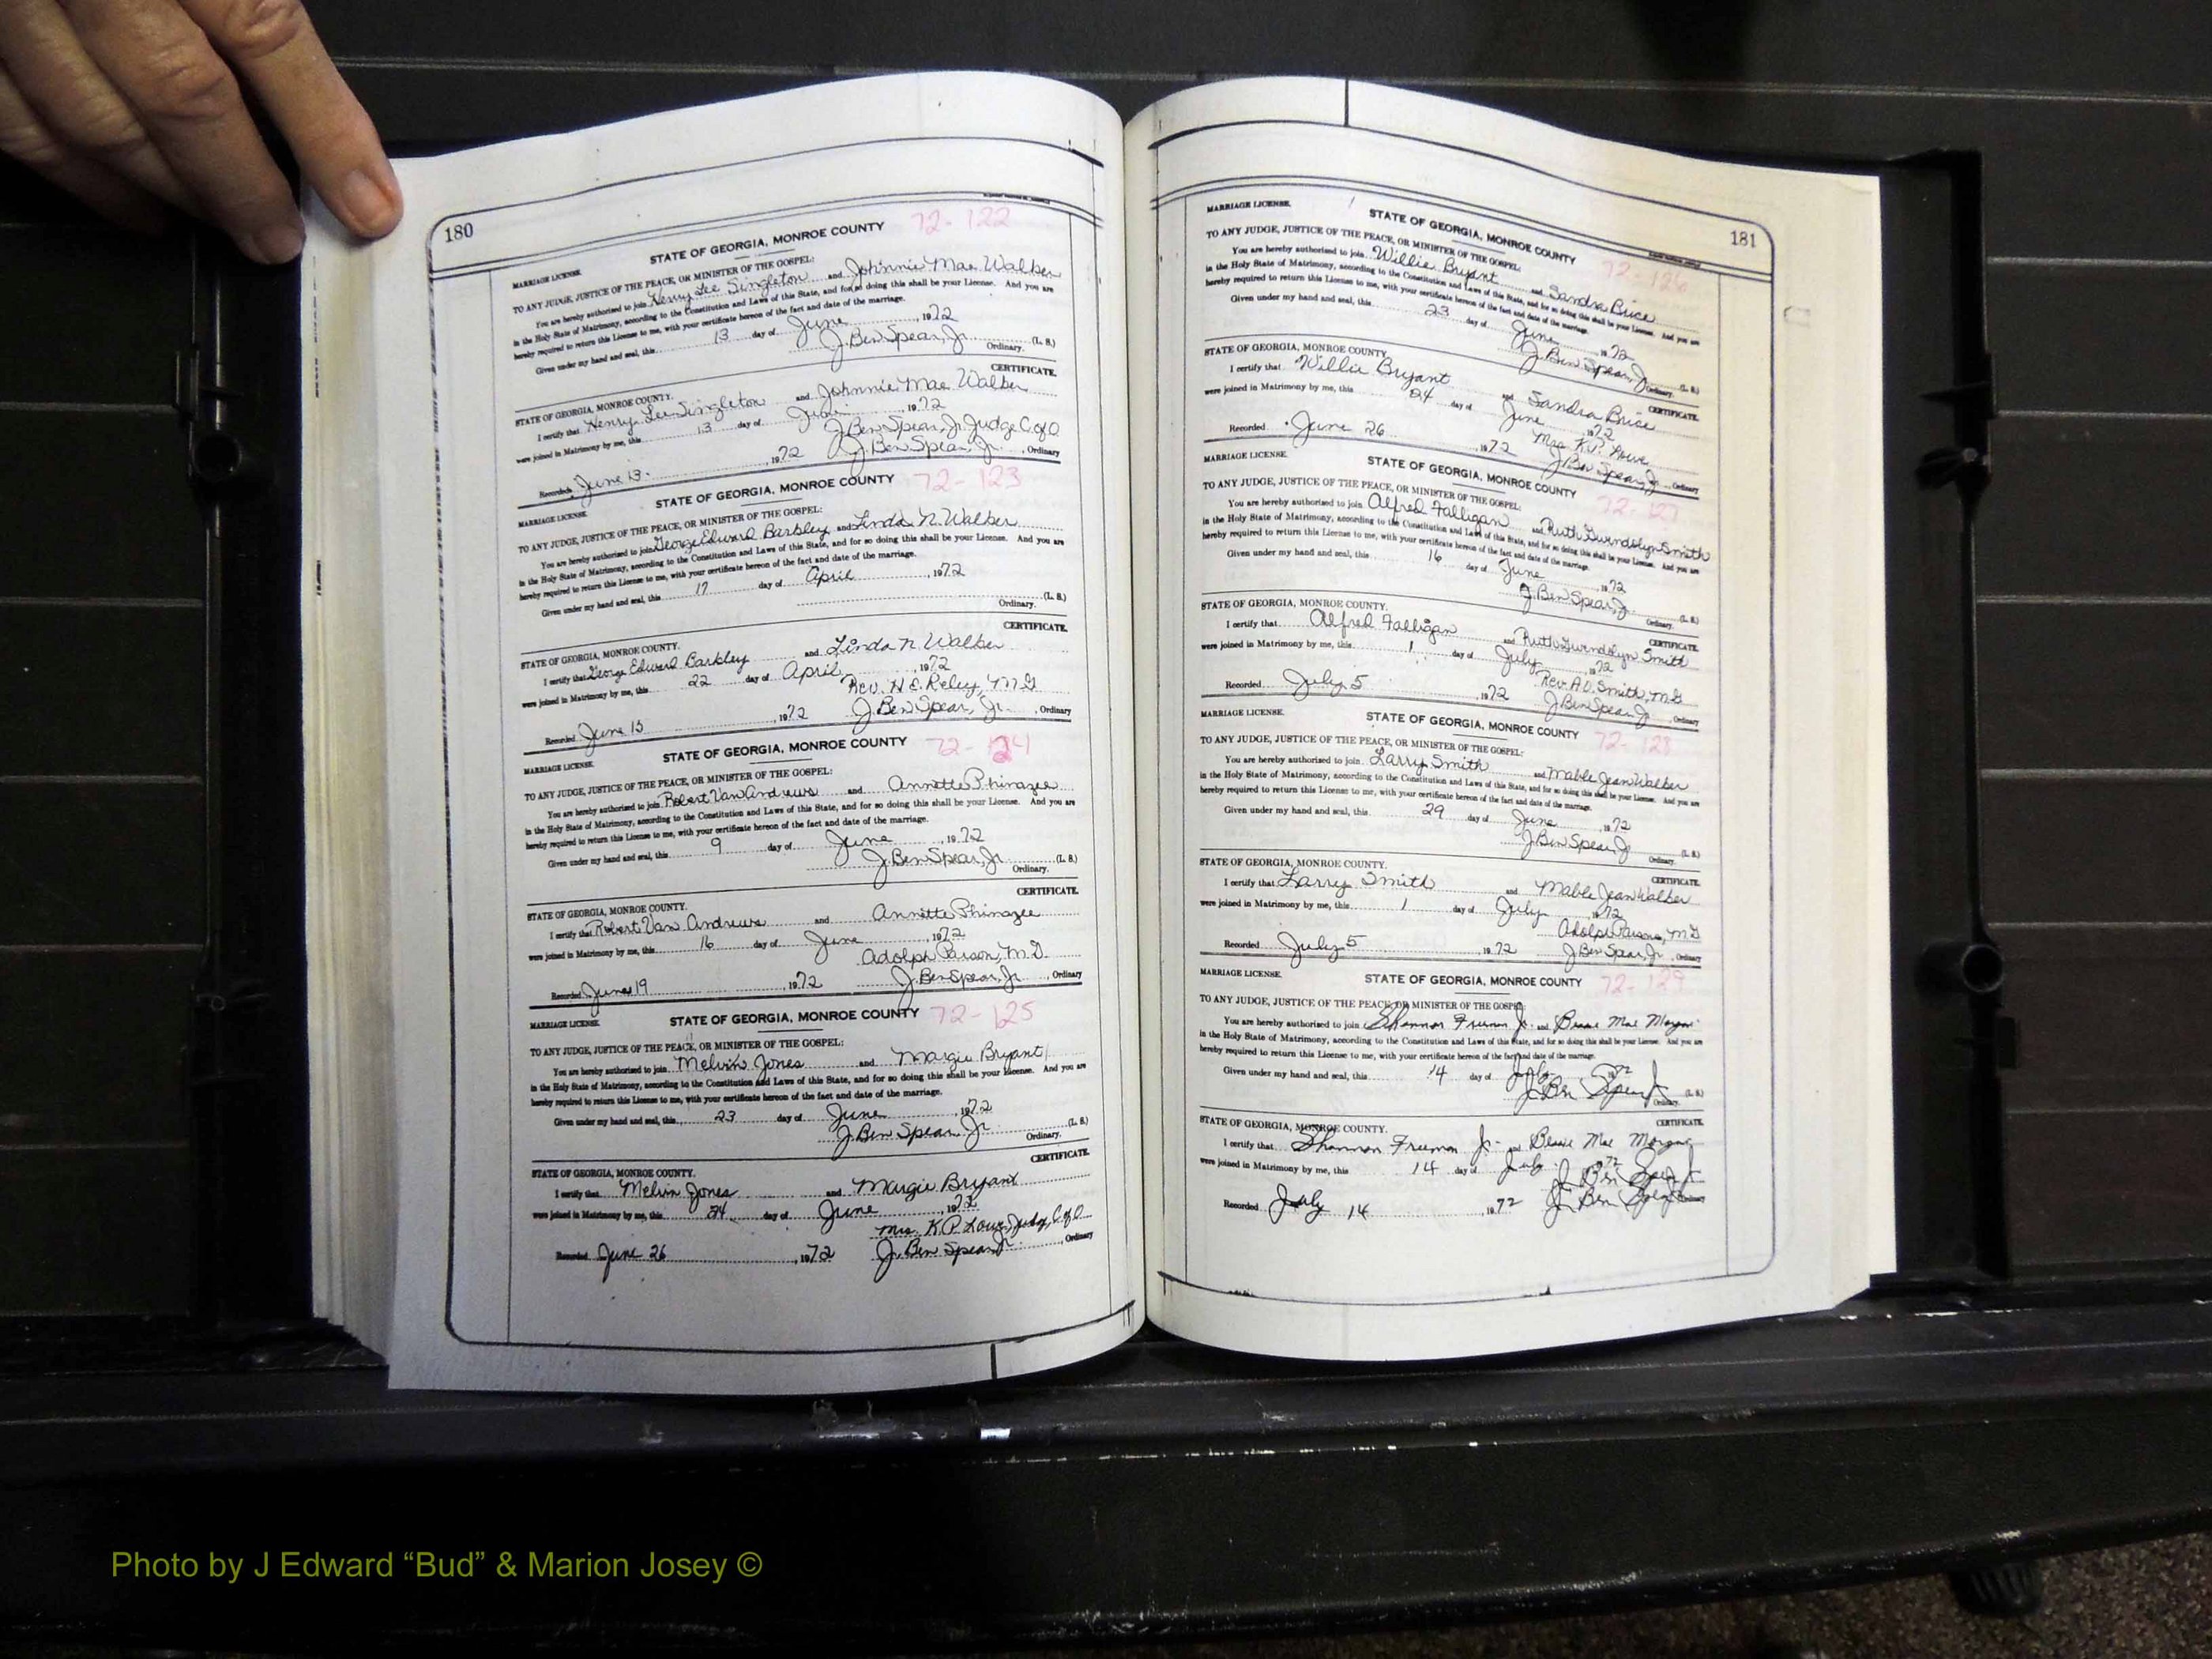 180
MARRIAGE LICENSE. STATE OF GEORGIA, MONROE COUNTY 72-122
TO ANY JUDGE, JUSTICE OF THE PEACE, OR MINISTER OF THE GOSPEL:
You are hereby authorized to join Henry Lee Singleton and Johnnie Mae Walker
in the Holy State of Matrimony, according to the Constitution and Laws of this State, and for so doing this shall be your License. And you are
hereby required to return this License to me, with your certificate hereon of the fact and date of the marriage.
Given under my hand and seal, this 13 day of June, 1972
J. Ben Spear, Jr. (L. S.)
Ordinary.
CERTIFICATE.
STATE OF GEORGIA, MONROE COUNTY.
I certify that Henry Lee Singleton and Johnnie Mae Walker
were joined in Matrimony by me, this 13 day of June 1972
J. Ben Spear, Jr. Judge C. of O.
Recorded June 13. , 1972 J. Ben Spear, Jr. , Ordinary
MARRIAGE LICENSE. STATE OF GEORGIA, MONROE COUNTY 72-123
TO ANY JUDGE, JUSTICE OF THE PEACE, OR MINISTER OF THE GOSPEL:
You are hereby authorized to join George Edward Barkley and Linda N. Walker
in the Holy State of Matrimony, according to the Constitution and Laws of this State, and for so doing this shall be your License. And you are
hereby required to return this License to me, with your certificate hereon of the fact and date of the marriage.
Given under my hand and seal, this 17 day of April, 1972
(L. S.)
Ordinary.
CERTIFICATE.
STATE OF GEORGIA, MONROE COUNTY.
I certify that George Edward Barkley and Linda N Walker
were joined in Matrimony by me, this 22 day of April, 1972
Rev. H.E. Reley, M G
Recorded June 15 , 1972 J. Ben Spear, Jr. , Ordinary
MARRIAGE LICENSE. STATE OF GEORGIA, MONROE COUNTY 72-124
TO ANY JUDGE, JUSTICE OF THE PEACE, OR MINISTER OF THE GOSPEL:
You are hereby authorized to join Robert Van Andrews and Annette Phinazee
in the Holy State of Matrimony, according to the Constitution and Laws of this State, and for so doing this shall be your License. And you are
hereby required to return this License to me, with your certificate hereon of the fact and date of the marriage.
Given under my hand and seal, this 9 day of June, 1972
J. Ben Spear, Jr. (L. S.)
Ordinary.
CERTIFICATE.
STATE OF GEORGIA, MONROE COUNTY.
I certify that Robert Van Andrews and Annette Phinazee
were joined in Matrimony by me, this 16 day of June, 1972
Adolph Parson, M.G.
Recorded June 19 , 1972 J. Ben Spear, Jr. , Ordinary
MARRIAGE LICENSE. STATE OF GEORGIA, MONROE COUNTY 72-125
TO ANY JUDGE, JUSTICE OF THE PEACE, OR MINISTER OF THE GOSPEL:
You are hereby authorized to join Melvin Jones and Margie Bryant
in the Holy State of Matrimony, according to the Constitution and Laws of this State, and for so doing this shall be your License. And you are
hereby required to return this License to me, with your certificate hereon of the fact and date of the marriage.
Given under my hand and seal, this 23 day of June, 1972
J. Ben Spear, Jr. (L. S.)
Ordinary.
CERTIFICATE.
STATE OF GEORGIA, MONROE COUNTY.
I certify that Melvin Jones and Margie Bryant
were joined in Matrimony by me, this 24 day of June, 1972
Mrs. K.P. Lowe, Judge, C of O
Recorded June 26 , 1972 J. Ben Spear Jr. , Ordinary
181
MARRIAGE LICENSE. STATE OF GEORGIA, MONROE COUNTY 72-126
TO ANY JUDGE, JUSTICE OF THE PEACE, OR MINISTER OF THE GOSPEL:
You are hereby authorized to join Willie Bryant and Sandra Brice
in the Holy State of Matrimony, according to the Constitution and Laws of this State, and for so doing this shall be your License. And you are
hereby required to return this License to me, with your certificate hereon of the fact and date of the marriage.
Given under my hand and seal, this 23 day of June, 1972
J. Ben Spear, Jr. (L. S.)
Ordinary.
STATE OF GEORGIA, MONROE COUNTY. CERTIFICATE.
I certify that Willie Bryant and Sandra Brice
were joined in Matrimony by me, this 24 day of June, 1972
Mrs. K.P. Lowe
Recorded June 26 , 1972 J. Ben Spear, Jr. , Ordinary
MARRIAGE LICENSE. STATE OF GEORGIA, MONROE COUNTY 72-127
TO ANY JUDGE, JUSTICE OF THE PEACE, OR MINISTER OF THE GOSPEL:
You are hereby authorized to join Alfred Falligan and Ruth Gwendolyn Smith
in the Holy State of Matrimony, according to the Constitution and Laws of this State, and for so doing this shall be your License. And you are
hereby required to return this License to me, with your certificate hereon of the fact and date of the marriage.
Given under my hand and seal, this 16 day of June, 1972
J. Ben Spear, Jr. (L. S.)
Ordinary.
STATE OF GEORGIA, MONROE COUNTY. CERTIFICATE.
I certify that Alfred Falligan and Ruth Gwendolyn Smith
were joined in Matrimony by me, this 1 day of July, 1972
Rev. A.D. Smith, M G
Recorded July 5 , 1972 J. Ben Spear, Jr. , Ordinary
MARRIAGE LICENSE. STATE OF GEORGIA, MONROE COUNTY 72-128
TO ANY JUDGE, JUSTICE OF THE PEACE, OR MINISTER OF THE GOSPEL:
You are hereby authorized to join Larry Smith and Mable Jean Walker
in the Holy State of Matrimony, according to the Constitution and Laws of this State, and for so doing this shall be your License. And you are
hereby required to return this License to me, with your certificate hereon of the fact and date of the marriage.
Given under my hand and seal, this 29 day of June, 1972
J. Ben Spear, Jr. (L. S.)
Ordinary.
STATE OF GEORGIA, MONROE COUNTY. CERTIFICATE.
I certify that Larry Smith and Mable Jean Walker
were joined in Matrimony by me, this 1 day of July, 1972
Adolph Parsons, M G
Recorded July 5 , 1972 J. Ben Spear, Jr. , Ordinary
MARRIAGE LICENSE. STATE OF GEORGIA, MONROE COUNTY 72-129
TO ANY JUDGE, JUSTICE OF THE PEACE, OR MINISTER OF THE GOSPEL:
You are hereby authorized to join Shannon Freeman Jr. and Bessie Mae Morgan
in the Holy State of Matrimony, according to the Constitution and Laws of this State, and for so doing this shall be your License. And you are
hereby required to return this License to me, with your certificate hereon of the fact and date of the marriage.
Given under my hand and seal, this 14 day of July 1972
J. Ben Spear Jr (L. S.)
Ordinary.
STATE OF GEORGIA, MONROE COUNTY. CERTIFICATE.
I certify that Shannon Freeman Jr. and Bessie Mae Morgan
were joined in Matrimony by me, this 14 day of July 1972
J. Ben Spear Jr
Recorded July 14 , 1972 J. Ben Spear Jr Ordinary
Photo by J Edward “Bud” & Marion Josey ©